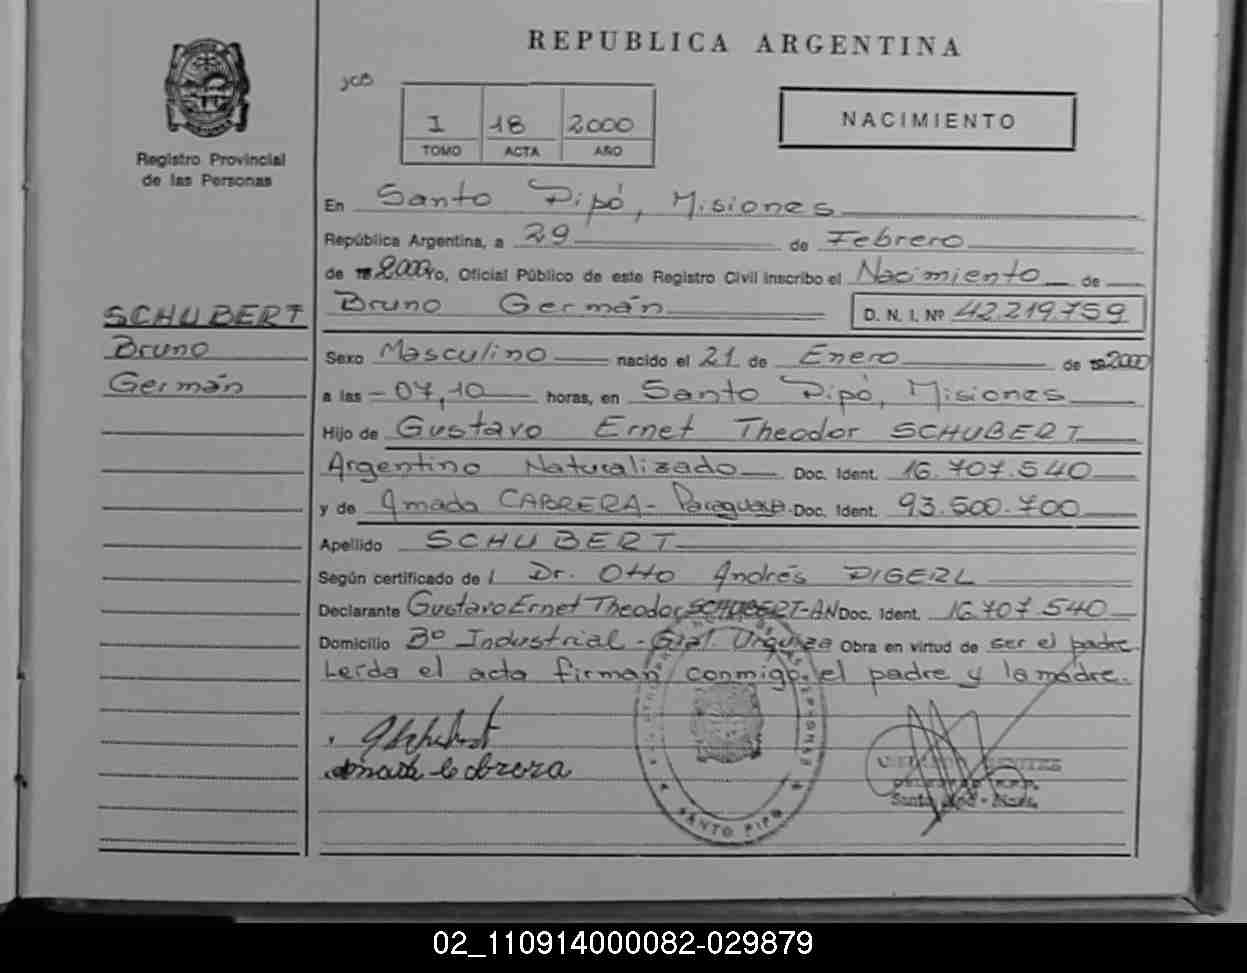 REPUBLICA ARGENTINA
JCB
I 18 2000
TOMO ACTA AÑO
NACIMIENTO
Registro Provincial
de las Personas
En Santo Pipó, Misiones
República Argentina, a 29 de Febrero
de 2000 ro, Oficial Público de este Registro Civil inscribo el Nacimiento de
Bruno Germán D. N. I. Nº 42.219.759
SCHUBERT
Bruno
Germán
Sexo Masculino nacido el 21 de Enero de 2000
a las - 07,10 horas, en Santo Pipó, Misiones
Hijo de Gustavo Ernet Theodor SCHUBERT
Argentino Naturalizado Doc. Ident. 16.707.540
y de Amada CABRERA - Paraguaya - Doc. Ident. 93.500.700
Apellido SCHUBERT
Según certificado de l Dr. Otto Andrés DIGERL
Declarante Gustavo Ernet Theodor SCHUBERT-AN Doc. Ident. 16.707.540
Domicilio Bº Industrial - Gral. Urquiza Obra en virtud de ser el padre
Leída el acta firman conmigo, el padre y la madre.
Amada Cabrera
SANTO PIPO
02_110914000082-029879